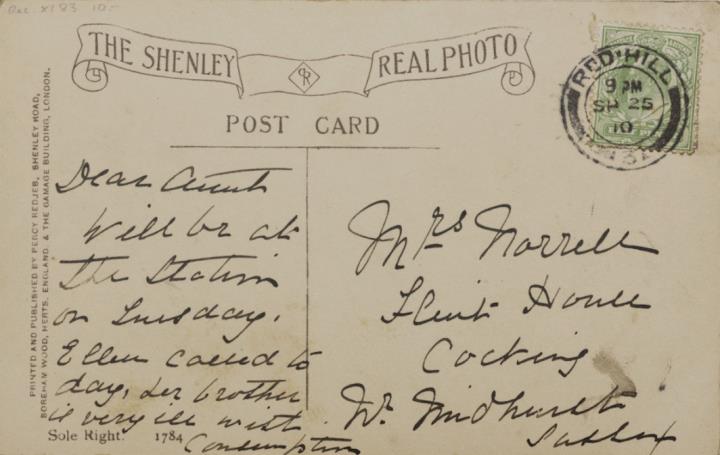 Rec. X183 10-
THE SHENLEY REAL PHOTO
PR
POST CARD
RED·HILL
9 PM
SP 25
10
PRINTED AND PUBLISHED BY PERCY REDJEB, SHENLEY ROAD,
BOREHAM WOOD, HERTS. ENGLAND. & THE GAMAGE BUILDING, LONDON.
Dear Aunt
Will be at
the station
on Tuesday.
Ellen called to
day, her brother
is very ill with
Consumption
Mrs Norrell
Flint House
Cocking
Nr. Midhurst
Sussex
Sole Right. 1784